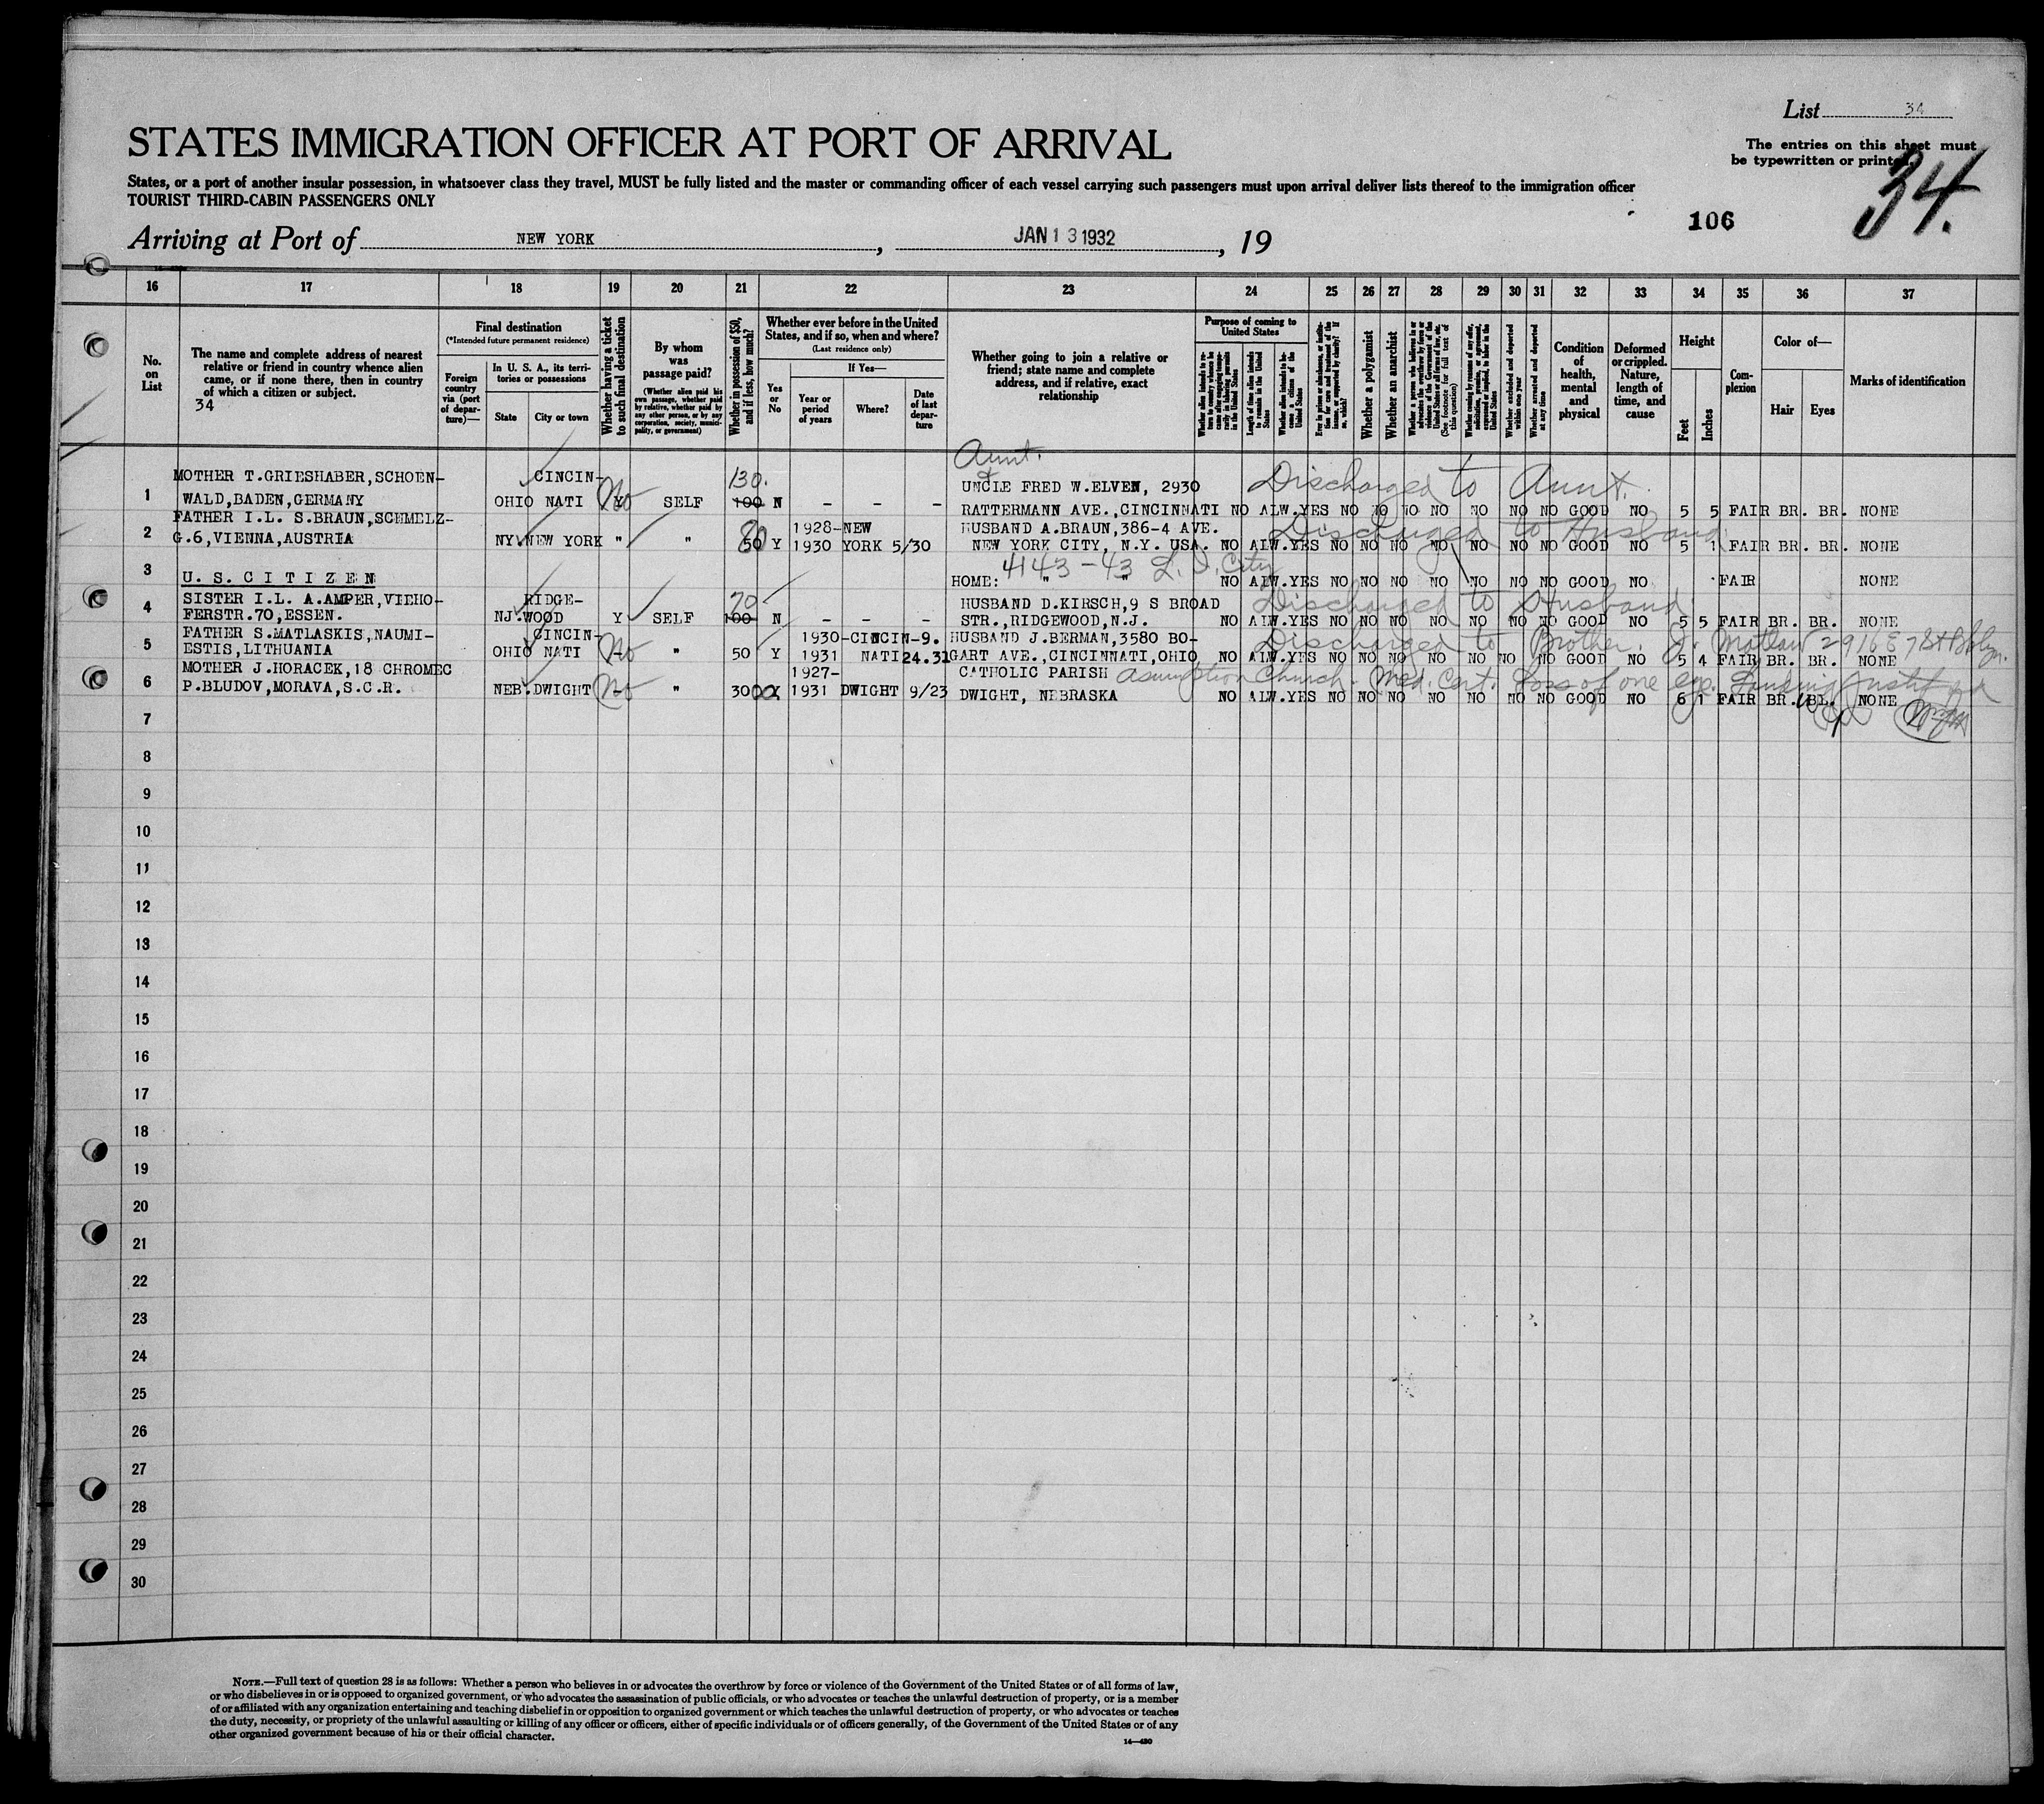 List 34
STATES IMMIGRATION OFFICER AT PORT OF ARRIVAL
The entries on this sheet must
be typewritten or printed.
34.
States, or a port of another insular possession, in whatsoever class they travel, MUST be fully listed and the master or commanding officer of each vessel carrying such passengers must upon arrival deliver lists thereof to the immigration officer
TOURIST THIRD-CABIN PASSENGERS ONLY
106
Arriving at Port of NEW YORK, JAN 13 1932, 19
16 17 18 19 20 21 22 23 24 25 26 27 28 29 30 31 32 33 34 35 36 37
No. on List
The name and complete address of nearest
relative or friend in country whence alien
came, or if none there, then in country
of which a citizen or subject.
34
Final destination
(*Intended future permanent residence)
Foreign country via (port of departure)—
In U. S. A., its territories or possessions
State
City or town
Whether having a ticket to such final destination
By whom was passage paid?
(Whether alien paid his own passage, whether paid by relative, whether paid by any other person, or by any corporation, society, municipality, or government)
Whether in possession of $50, and if less, how much?
Whether ever before in the United States, and if so, when and where?
(Last residence only)
Yes or No
If Yes—
Year or period of years
Where?
Date of last departure
Whether going to join a relative or
friend; state name and complete
address, and if relative, exact
relationship
Purpose of coming to United States
Length of time alien intends to remain in the United States
Whether alien intends to become a citizen of the United States
Whether a polygamist
Whether an anarchist
(See footnote for full text of this question)
Whether excluded and deported within one year
Whether arrested and deported at any time
Condition of health, mental and physical
Deformed or crippled. Nature, length of time, and cause
Height
Feet
Inches
Complexion
Color of—
Hair
Eyes
Marks of identification
Aunt &
MOTHER T.GRIESHABER,SCHOEN- CINCIN- 130. UNCLE FRED W.ELVEN, 2930 Discharged to Aunt.
1 WALD,BADEN,GERMANY OHIO NATI No Y SELF 100 N - - - RATTERMANN AVE.,CINCINNATI NO ALW.YES NO NO NO NO NO NO NO GOOD NO 5 5 FAIR BR. BR. NONE
FATHER I.L. S.BRAUN,SCHMELZ- 80 1928-NEW HUSBAND A.BRAUN,386-4 AVE. Discharged to Husband
2 G.6,VIENNA,AUSTRIA NY. NEW YORK " " 50 Y 1930 YORK 5/30 NEW YORK CITY, N.Y. USA. NO ALW.YES NO NO NO NO NO NO NO GOOD NO 5 1 FAIR BR. BR. NONE
4143-43 L. I. City
3 U. S. C I T I Z E N HOME: " " NO ALW.YES NO NO NO NO NO NO NO GOOD NO FAIR NONE
SISTER I.L. A.AMPER,VIEHO- RIDGE- 70 HUSBAND D.KIRSCH,9 S BROAD Discharged to Husband
4 FERSTR.70,ESSEN. NJ. WOOD Y SELF 100 N - - - STR.,RIDGEWOOD,N.J. NO ALW.YES NO NO NO NO NO NO NO GOOD NO 5 5 FAIR BR. BR. NONE
FATHER S.MATLASKIS,NAUMI- CINCIN- 1930-CINCIN-9. HUSBAND J.BERMAN,3580 BO- Discharged to Brother. J. Matlaw 2916 E 7 St Bklyn.
5 ESTIS,LITHUANIA OHIO NATI No " 50 Y 1931 NATI 24.31 GART AVE.,CINCINNATI,OHIO NO ALW.YES NO NO NO NO NO NO NO GOOD NO 5 4 FAIR BR. BR. NONE
MOTHER J.HORACEK,18 CHROMEC 1927- CATHOLIC PARISH Asumption Church. Med. Cert. Loss of one eye.
6 P.BLUDOV,MORAVA,S.C.R. NEB. DWIGHT No " 300 Y 1931 DWIGHT 9/23 DWIGHT, NEBRASKA NO ALW.YES NO NO NO NO NO NO NO GOOD NO 6 1 FAIR BR. BL. NONE
7
8
9
10
11
12
13
14
15
16
17
18
19
20
21
22
23
24
25
26
27
28
29
30
NOTE.—Full text of question 28 is as follows: Whether a person who believes in or advocates the overthrow by force or violence of the Government of the United States or of all forms of law,
or who disbelieves in or is opposed to organized government, or who advocates the assassination of public officials, or who advocates or teaches the unlawful destruction of property, or is a member
of or affiliated with any organization entertaining and teaching disbelief in or opposition to organized government or which teaches the unlawful destruction of property, or who advocates or teaches
the duty, necessity, or propriety of the unlawful assaulting or killing of any officer or officers, either of specific individuals or of officers generally, of the Government of the United States or of any
other organized government because of his or their official character.
14—430